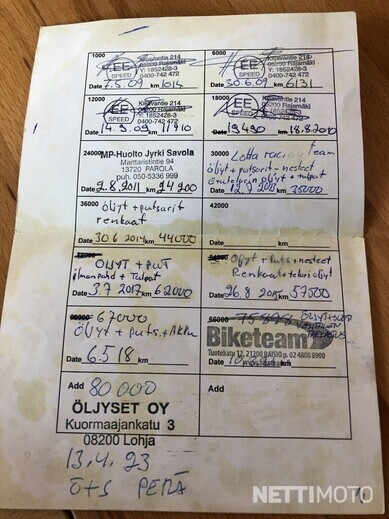 1000
Kiitavantie 214
05200 Rajamäki
Y: 1852428-3
0400-742 472
EE
SPEED
Date 7.5.09 km 1014
6000
Kiitavantie 214
05200 Rajamäki
Y: 1852428-3
0400-742 472
EE
SPEED
Date 30.6.09 km 6131
12000
Kiitavantie 214
05200 Rajamäki
Y: 1852428-3
0400-742 472
EE
SPEED
Date 14.9.09 km 11910
18000
Kiitavantie 214
05200 Rajamäki
Y: 1852428-3
0400-742 472
EE
SPEED
Date 19490 km 18.8.2010
24000
MP-Huolto Jyrki Savola
Marttaristintie 94
13720 PAROLA
puh. 050-5336 999
Date 2.8.2011 km 24200
30000 Lotta racing team
öljyt + putsarit - nesteet
öljyt + tulpat
Date km 35000
36000 öljyt + putsarit
renkaat
Date 30.6 2014 km 44000
42000
Date km
ÖLJYT + PUT
ilmanpuhd + Tulpat
Date 3.7 2017 km 62000
Öljyt + puts + nesteet
Renkaat + teleriöljyt
Date 26.8 2015 km 57500
67000
öljyt + puts. + Akku
Date 6.5 18 km
66000 75898
ÖLJYT + SUOD
VENTTIILIEN
TARKASTUS
Biketeam
Tuotekatu 12, 21200 RAISIO p. 02 4808 8900
Date km
Add 80 000
ÖLJYSET OY
Kuormaajankatu 3
08200 Lohja
13.4.23
Ö+S PERÄ
Add
NETTIMOTO